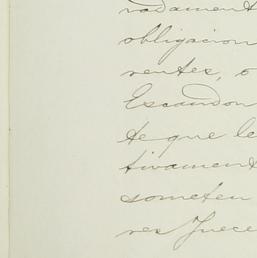 radament
obligacion
rentes, o
Escandon
te que le
tivament
someten
res Juece